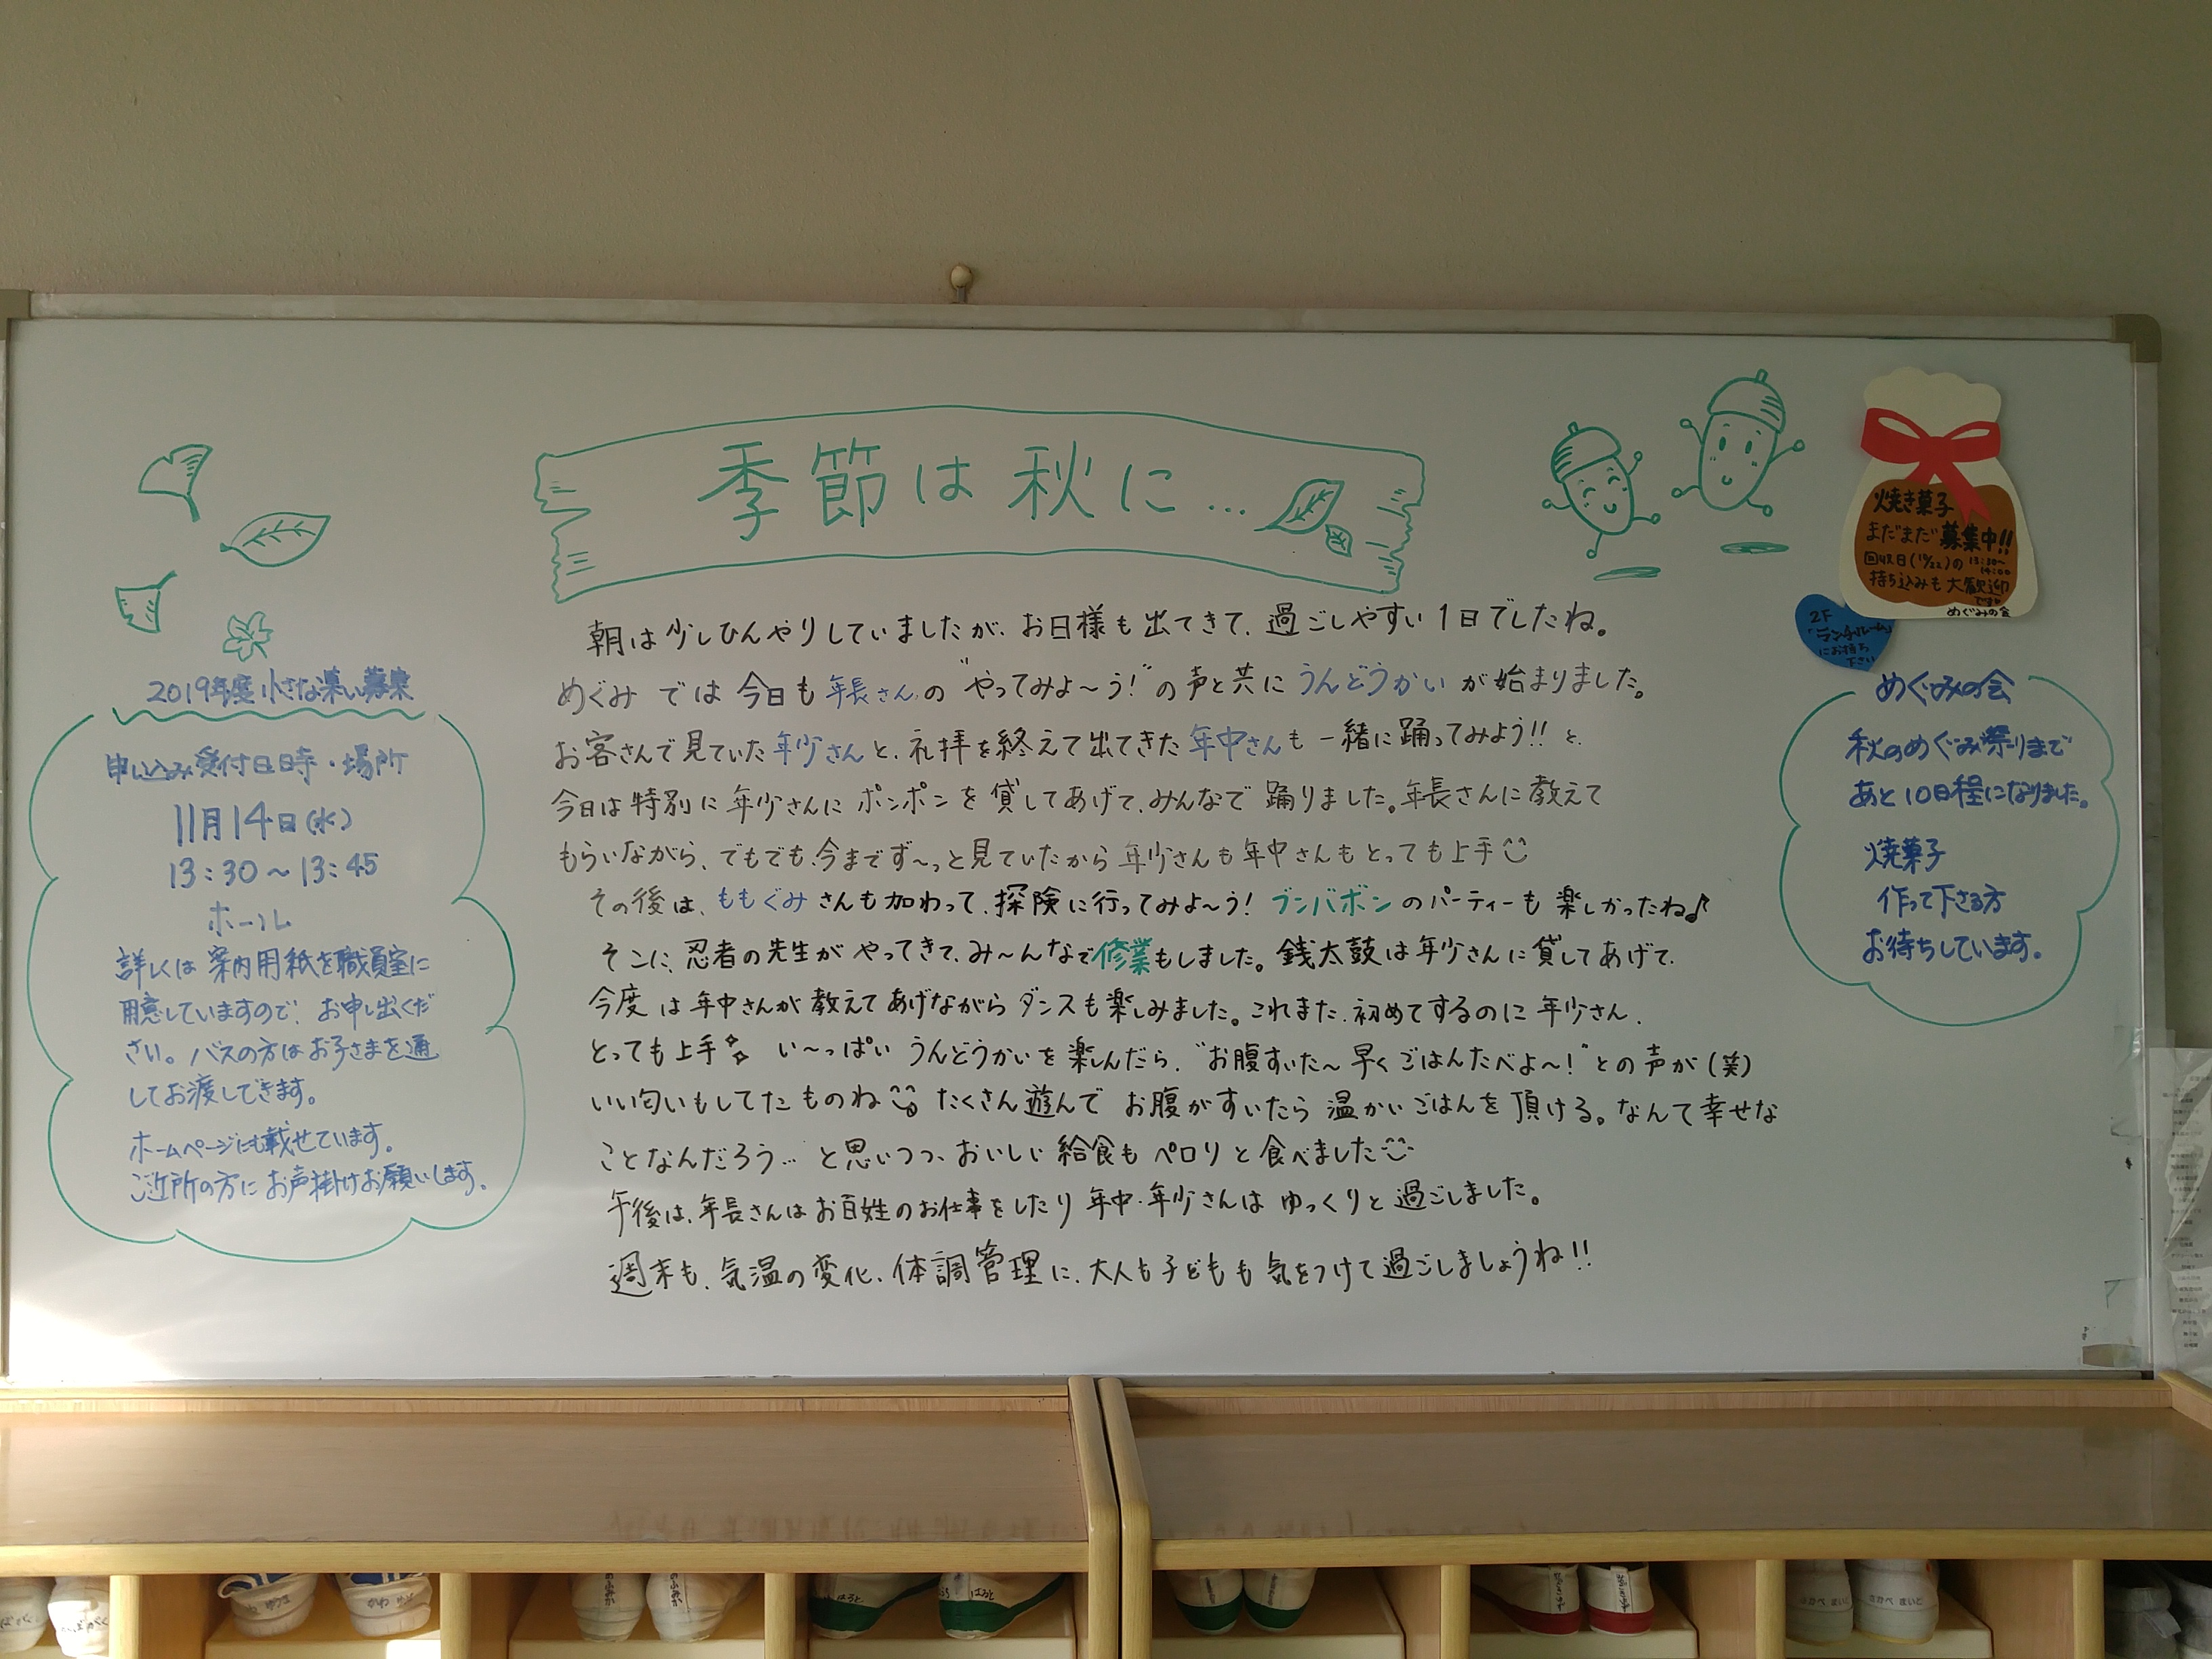 季節は秋に…
朝は少しひんやりしていましたが、お日様も出てきて、過ごしやすい1日でしたね。
めぐみでは今日も年長さんの"やってみよ～う!"の声と共にうんどうかいが始まりました。
お客さんで見ていた年少さんと、礼拝を終えて出てきた年中さんも一緒に踊ってみよう!!と、
今日は特別に年少さんにポンポンを貸してあげて、みんなで踊りました。年長さんに教えて
もらいながら、でもでも、今までず～っと見ていたから年少さんも年中さんもとっても上手
その後は、ももぐみさんも加わって、探険に行ってみよ～う!ブンバボンのパーティーも楽しかったね♪
そこに、忍者の先生がやってきて、み～んなで修業もしました。銭太鼓は年少さんに貸してあげて、
今度は年中さんが教えてあげながらダンスも楽しみました。これまた、初めてするのに年少さん、
とっても上手 い～っぱいうんどうかいを楽しんだら、"お腹すいた～早くごはんたべよ～!"との声が(笑)
いい匂いもしてたものね たくさん遊んでお腹がすいたら温かいごはんを頂ける。なんて幸せな
ことなんだろう…と思いつつ、おいしい給食もペロリと食べました
午後は、年長さんはお百姓のお仕事をしたり年中・年少さんはゆっくりと過ごしました。
週末も、気温の変化、体調管理に、大人も子どもも気をつけて過ごしましょうね!!
2019年度小さな集い募集
申し込み受付日時・場所
11月14日(水)
13:30～13:45
ホール
詳しくは案内用紙を職員室に
用意していますので、お申し出くだ
さい。バスの方はお子さまを通
してお渡しできます。
ホームページにも載せています。
ご近所の方にお声掛けお願いします。
焼き菓子
まだまだ募集中!!
回収日(10/22)の13:30～
14:00
持ち込みも大歓迎
です
めぐみの会
2F
「ランチルーム」
にお持ち
下さい
めぐみの会
秋のめぐみ祭りまで
あと10日程になりました。
焼菓子
作って下さる方
お待ちしています。
さかべ まいと